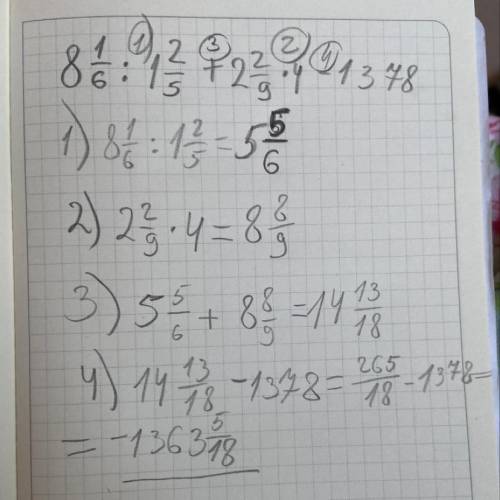 8 1/6 : 1 2/5 + 2 2/9 · 4 - 1378
1) 3) 2) 4)
1) 8 1/6 : 1 2/5 = 5 5/6
2) 2 2/9 · 4 = 8 8/9
3) 5 5/6 + 8 8/9 = 14 13/18
4) 14 13/18 - 1378 = 265/18 - 1378 =
= -1363 5/18